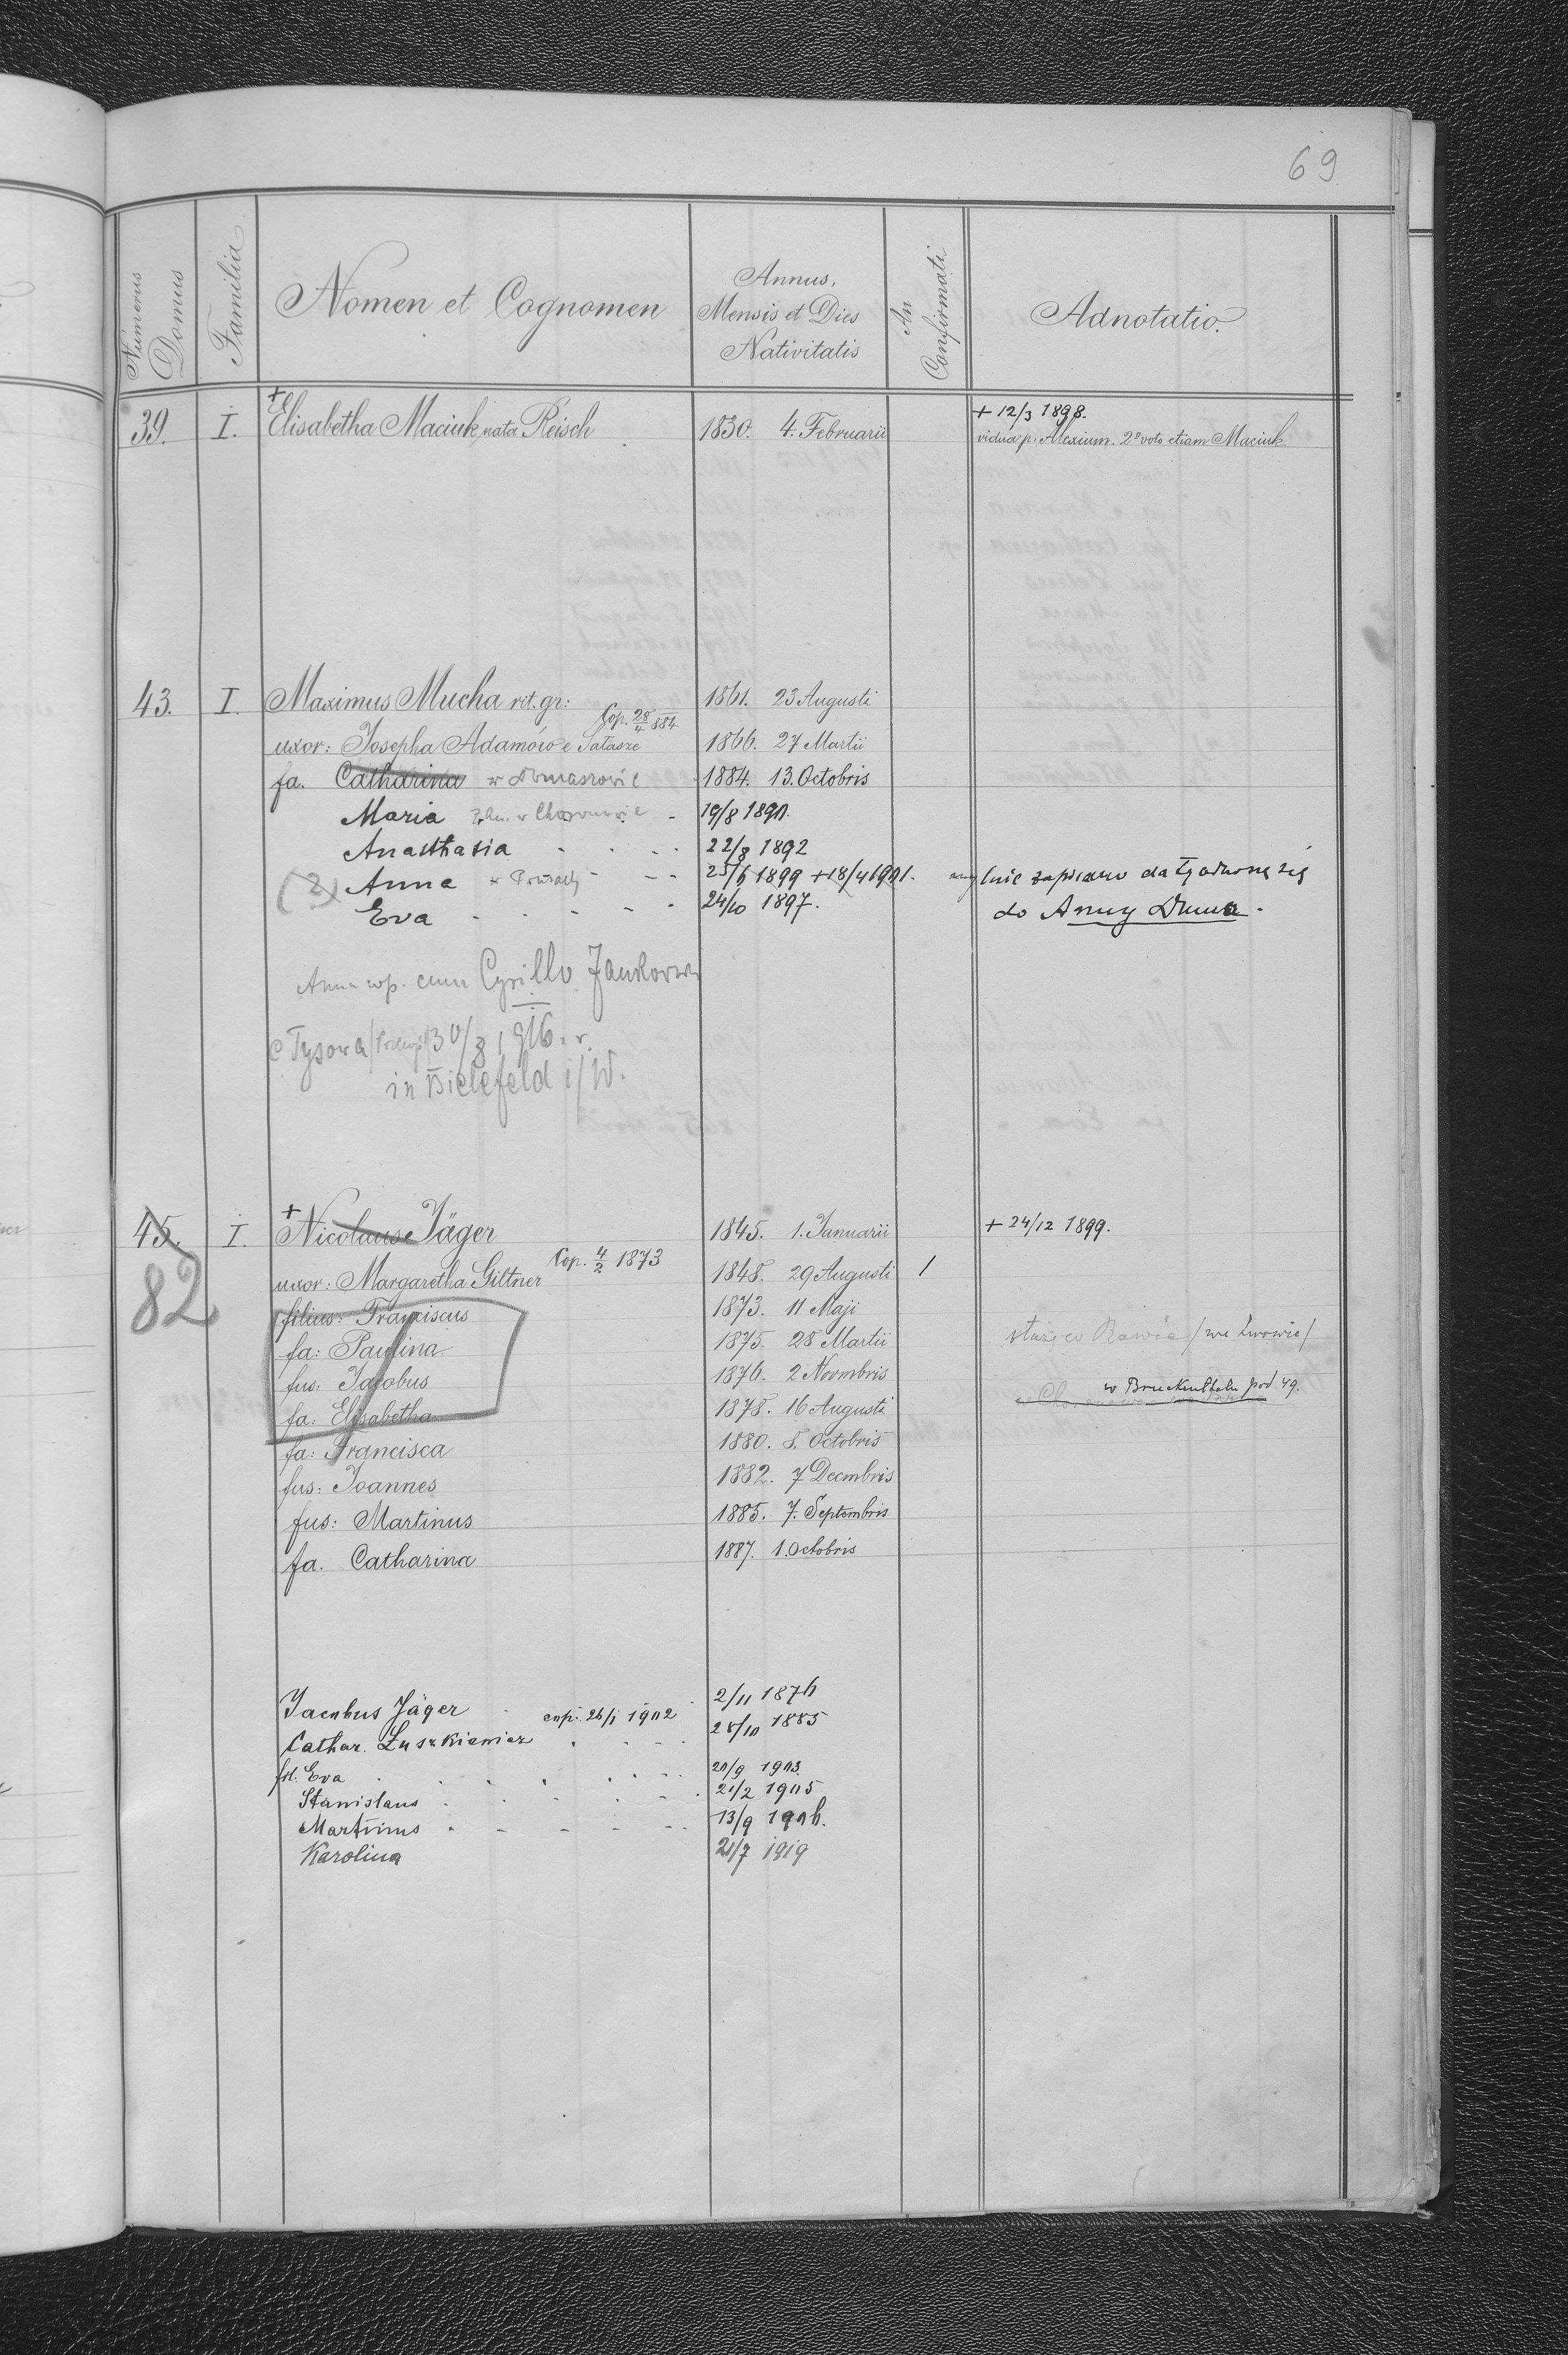 69
Numerus Domus Familia Nomen et Cognomen Annus, Mensis et Dies Nativitatis An Confirmati Adnotatio.
39. I. + Elisabetha Maciuk, nata Reisch 1830. 4. Februarii + 12/3 1898.
vidua p. Alexium. 2º voto etiam Maciuk
43. I. Maximus Mucha rit. gr: 1861. 23 Augusti
Cop. 28/4 884
uxor: Josepha Adamów e Sałasze 1866. 27 Martii
fa. Catharina w 1884. 13. Octobris
Maria 19/8 1890.
Anasthasia 22/8 1892
(2) Anna 25/6 1899 +18/4 1901. mylnie zapisano datę odnoszę się
Eva 24/10 1897. do Anny Duma.
Anna cop. cum Cyrillo
e Tysowa 30/8 1916. r.
in Bielefeld i/W.
45. I. + Nicolaus Jäger 1845. 1. Januarii + 24/12 1899.
82
Cop. 4/2 1873
uxor: Margaretha Giltner 1848. 29 Augusti 1
filius: Franciscus 1873. 11 Maji
fa: Paulina 1875. 28 Martii służy w Rawie /we Lwowie/
fus: Jacobus 1876. 2 Novmbris
fa: Elisabetha 1878. 16 Augusti w Bruckenthalu pod 49.
fa: Francisca 1880. 8. Octobris
fus: Joannes 1882. 7 Decmbris
fus: Martinus 1885. 7. Septembris
fa. Catharina 1887. 1. Octobris
Jacobus Jäger 2/11 1876
cop. 26/1 1902
Cathar. Łuszkiewicz 28/10 1885
fil. Eva 20/9 1903.
Stanislaus 21/2 1905
Martinus 13/9 1906.
Karolina 21/7 1919